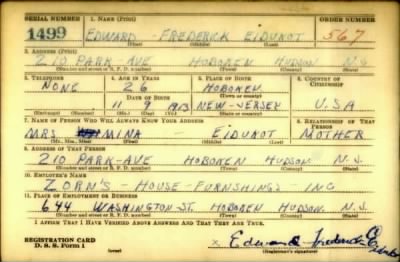 SERIAL NUMBER 1. NAME (Print) ORDER NUMBER
1499 EDWARD FREDERICK EIDUKOT 567
(First) (Middle) (Last)
2. ADDRESS (Print)
210 PARK AVE HOBOKEN HUDSON N.J.
(Number and street or R. F. D. number) (Town) (County) (State)
3. TELEPHONE 4. AGE IN YEARS 5. PLACE OF BIRTH 6. COUNTRY OF CITIZENSHIP
NONE 26 HOBOKEN
DATE OF BIRTH (Town or county)
11 9 1913 NEW-JERSEY U.S.A
(Exchange) (Number) (Mo.) (Day) (Yr.) (State or country)
7. NAME OF PERSON WHO WILL ALWAYS KNOW YOUR ADDRESS 8. RELATIONSHIP OF THAT PERSON
MRS. MINA EIDUKOT MOTHER
(Mr., Mrs., Miss) (First) (Middle) (Last)
9. ADDRESS OF THAT PERSON
210 PARK-AVE HOBOKEN HUDSON N.J.
(Number and street or R. F. D. number) (Town) (County) (State)
10. EMPLOYER'S NAME
ZORN'S - HOUSE - FURNSHINGS - INC
11. PLACE OF EMPLOYMENT OR BUSINESS
644 WASHINGTON ST. HOBOKEN HUDSON N.J.
(Number and street or R. F. D. number) (Town) (County) (State)
I AFFIRM THAT I HAVE VERIFIED ABOVE ANSWERS AND THAT THEY ARE TRUE.
REGISTRATION CARD
D. S. S. Form 1 x Edward Frederick
(Registrant's signature)